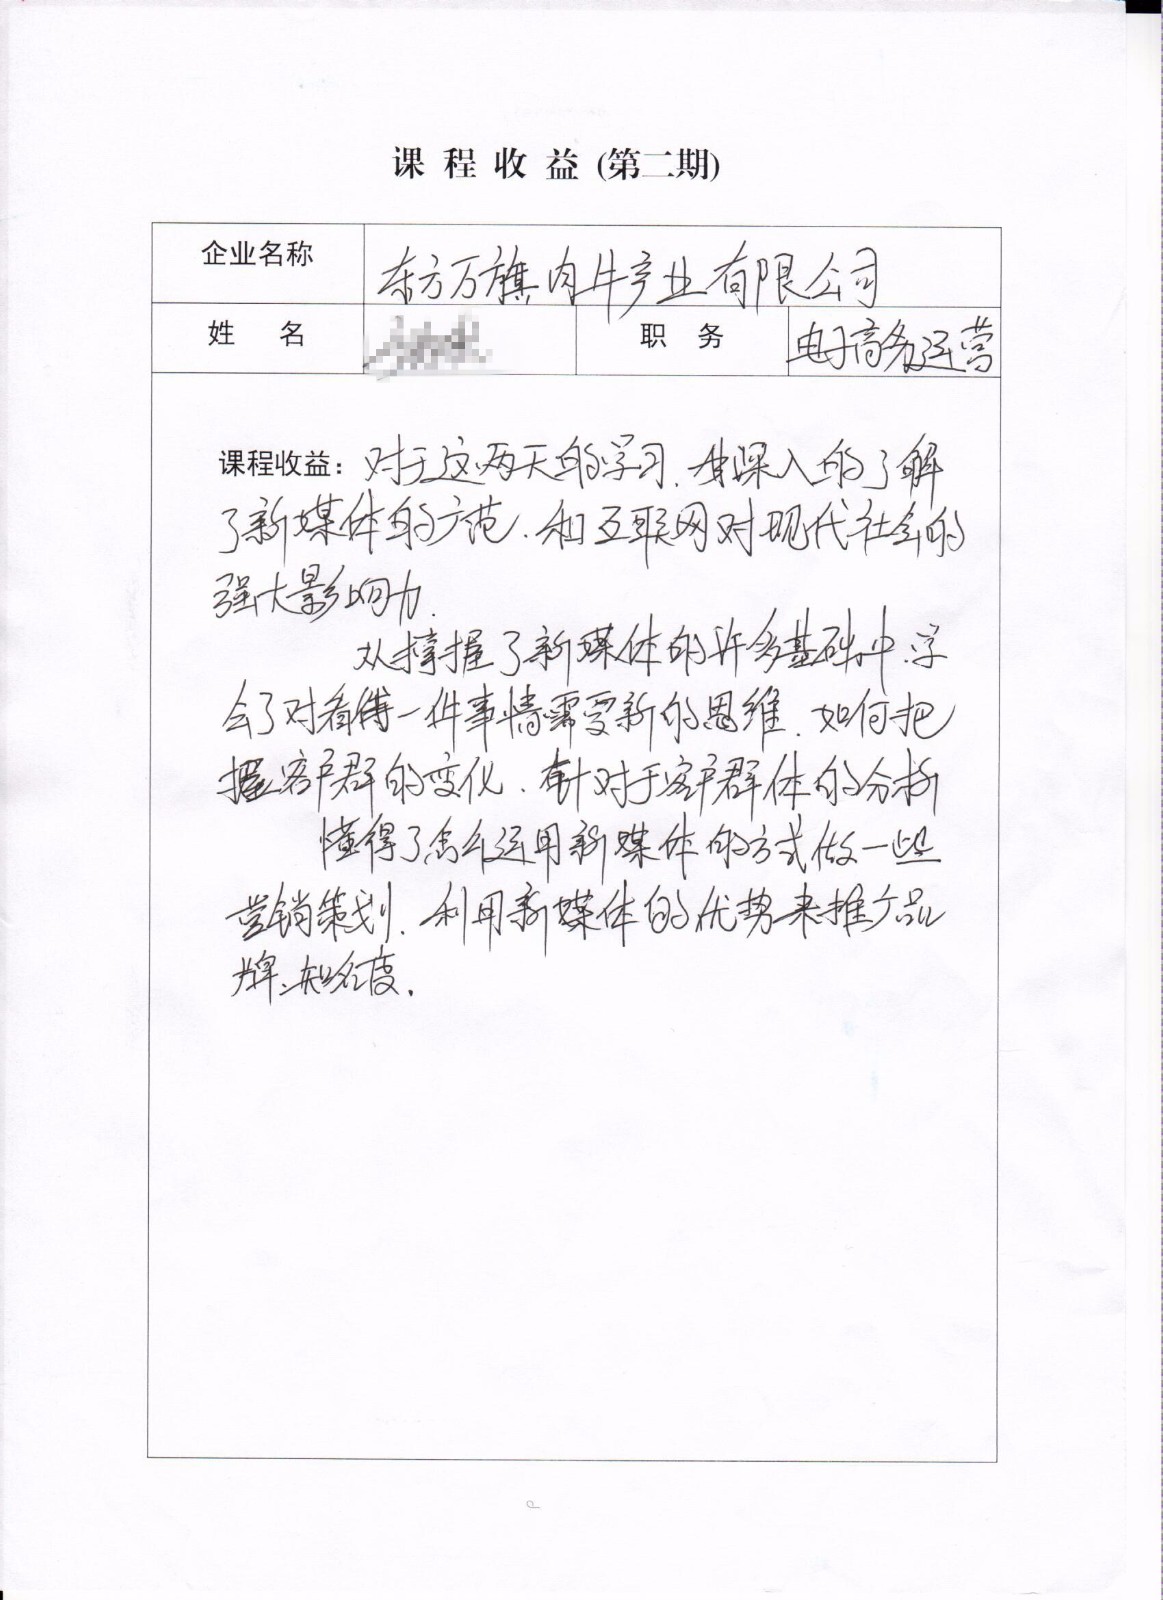 课 程 收 益 (第二期)
企业名称 东方万旗肉牛产业有限公司
姓 名 职 务 电子商务运营
课程收益：对于这两天的学习.深入的了解
了新媒体的广范.和互联网对现代社会的
强大影响力.
从撑握了新媒体的许多基础中.学
会了对看待一件事情需要新的思维.如何把
握客户群的变化.针对于客户群体的分析
懂得了怎么运用新媒体的方式做一些
营销策划.利用新媒体的优势来推广品
牌.知名度.